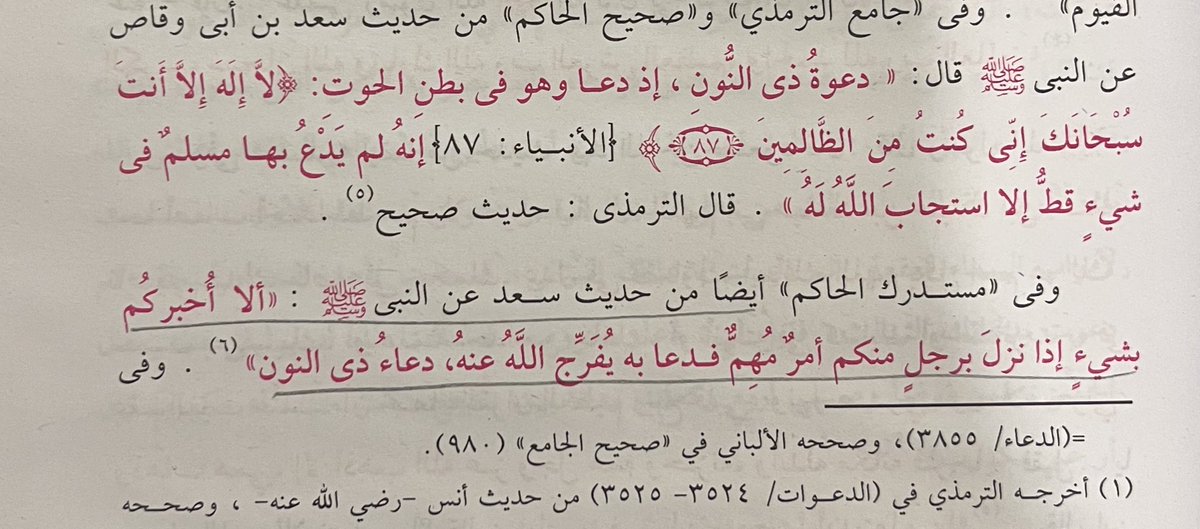 القيوم» . وفى «جامع الترمذي» و«صحيح الحاكم» من حديث سعد بن أبى وقاص
عن النبى ﷺ قال: « دعوةُ ذى النُّونِ ، إذ دعـا وهو فى بطنِ الحوت: ﴿لاَّ إِلَهَ إِلاَّ أَنتَ
سُبْحَانَكَ إِنِّى كُنتُ مِنَ الظَّالِمِينَ ﴿٨٧﴾ ﴾ [الأنبـياء: ٨٧] إنهُ لم يَدْعُ بهـا مسلمٌ فى
شيءٍ قطُّ إلا استجابَ اللَّهُ لَهُ » . قال الترمذى : حديث صحيح(٥) .
وفى «مستـدرك الحاكم» أيضًا من حديث سـعد عن النبى ﷺ : «ألا أُخبركُم
بشيءٍ إذا نزلَ برجلٍ منكم أمرٌ مُهِمٌّ فـدعا به يُفَرِّج اللَّهُ عنهُ، دعاءُ ذى النون»(٦) . وفى
=(الدعاء/ ٣٨٥٥)، وصححه الألباني في «صحيح الجامع» (٩٨٠).
(١) أخرجـه الترمذي في (الدعـوات/ ٣٥٢٤- ٣٥٢٥) من حديث أنس -رضي الله عنه- ، وصححـه